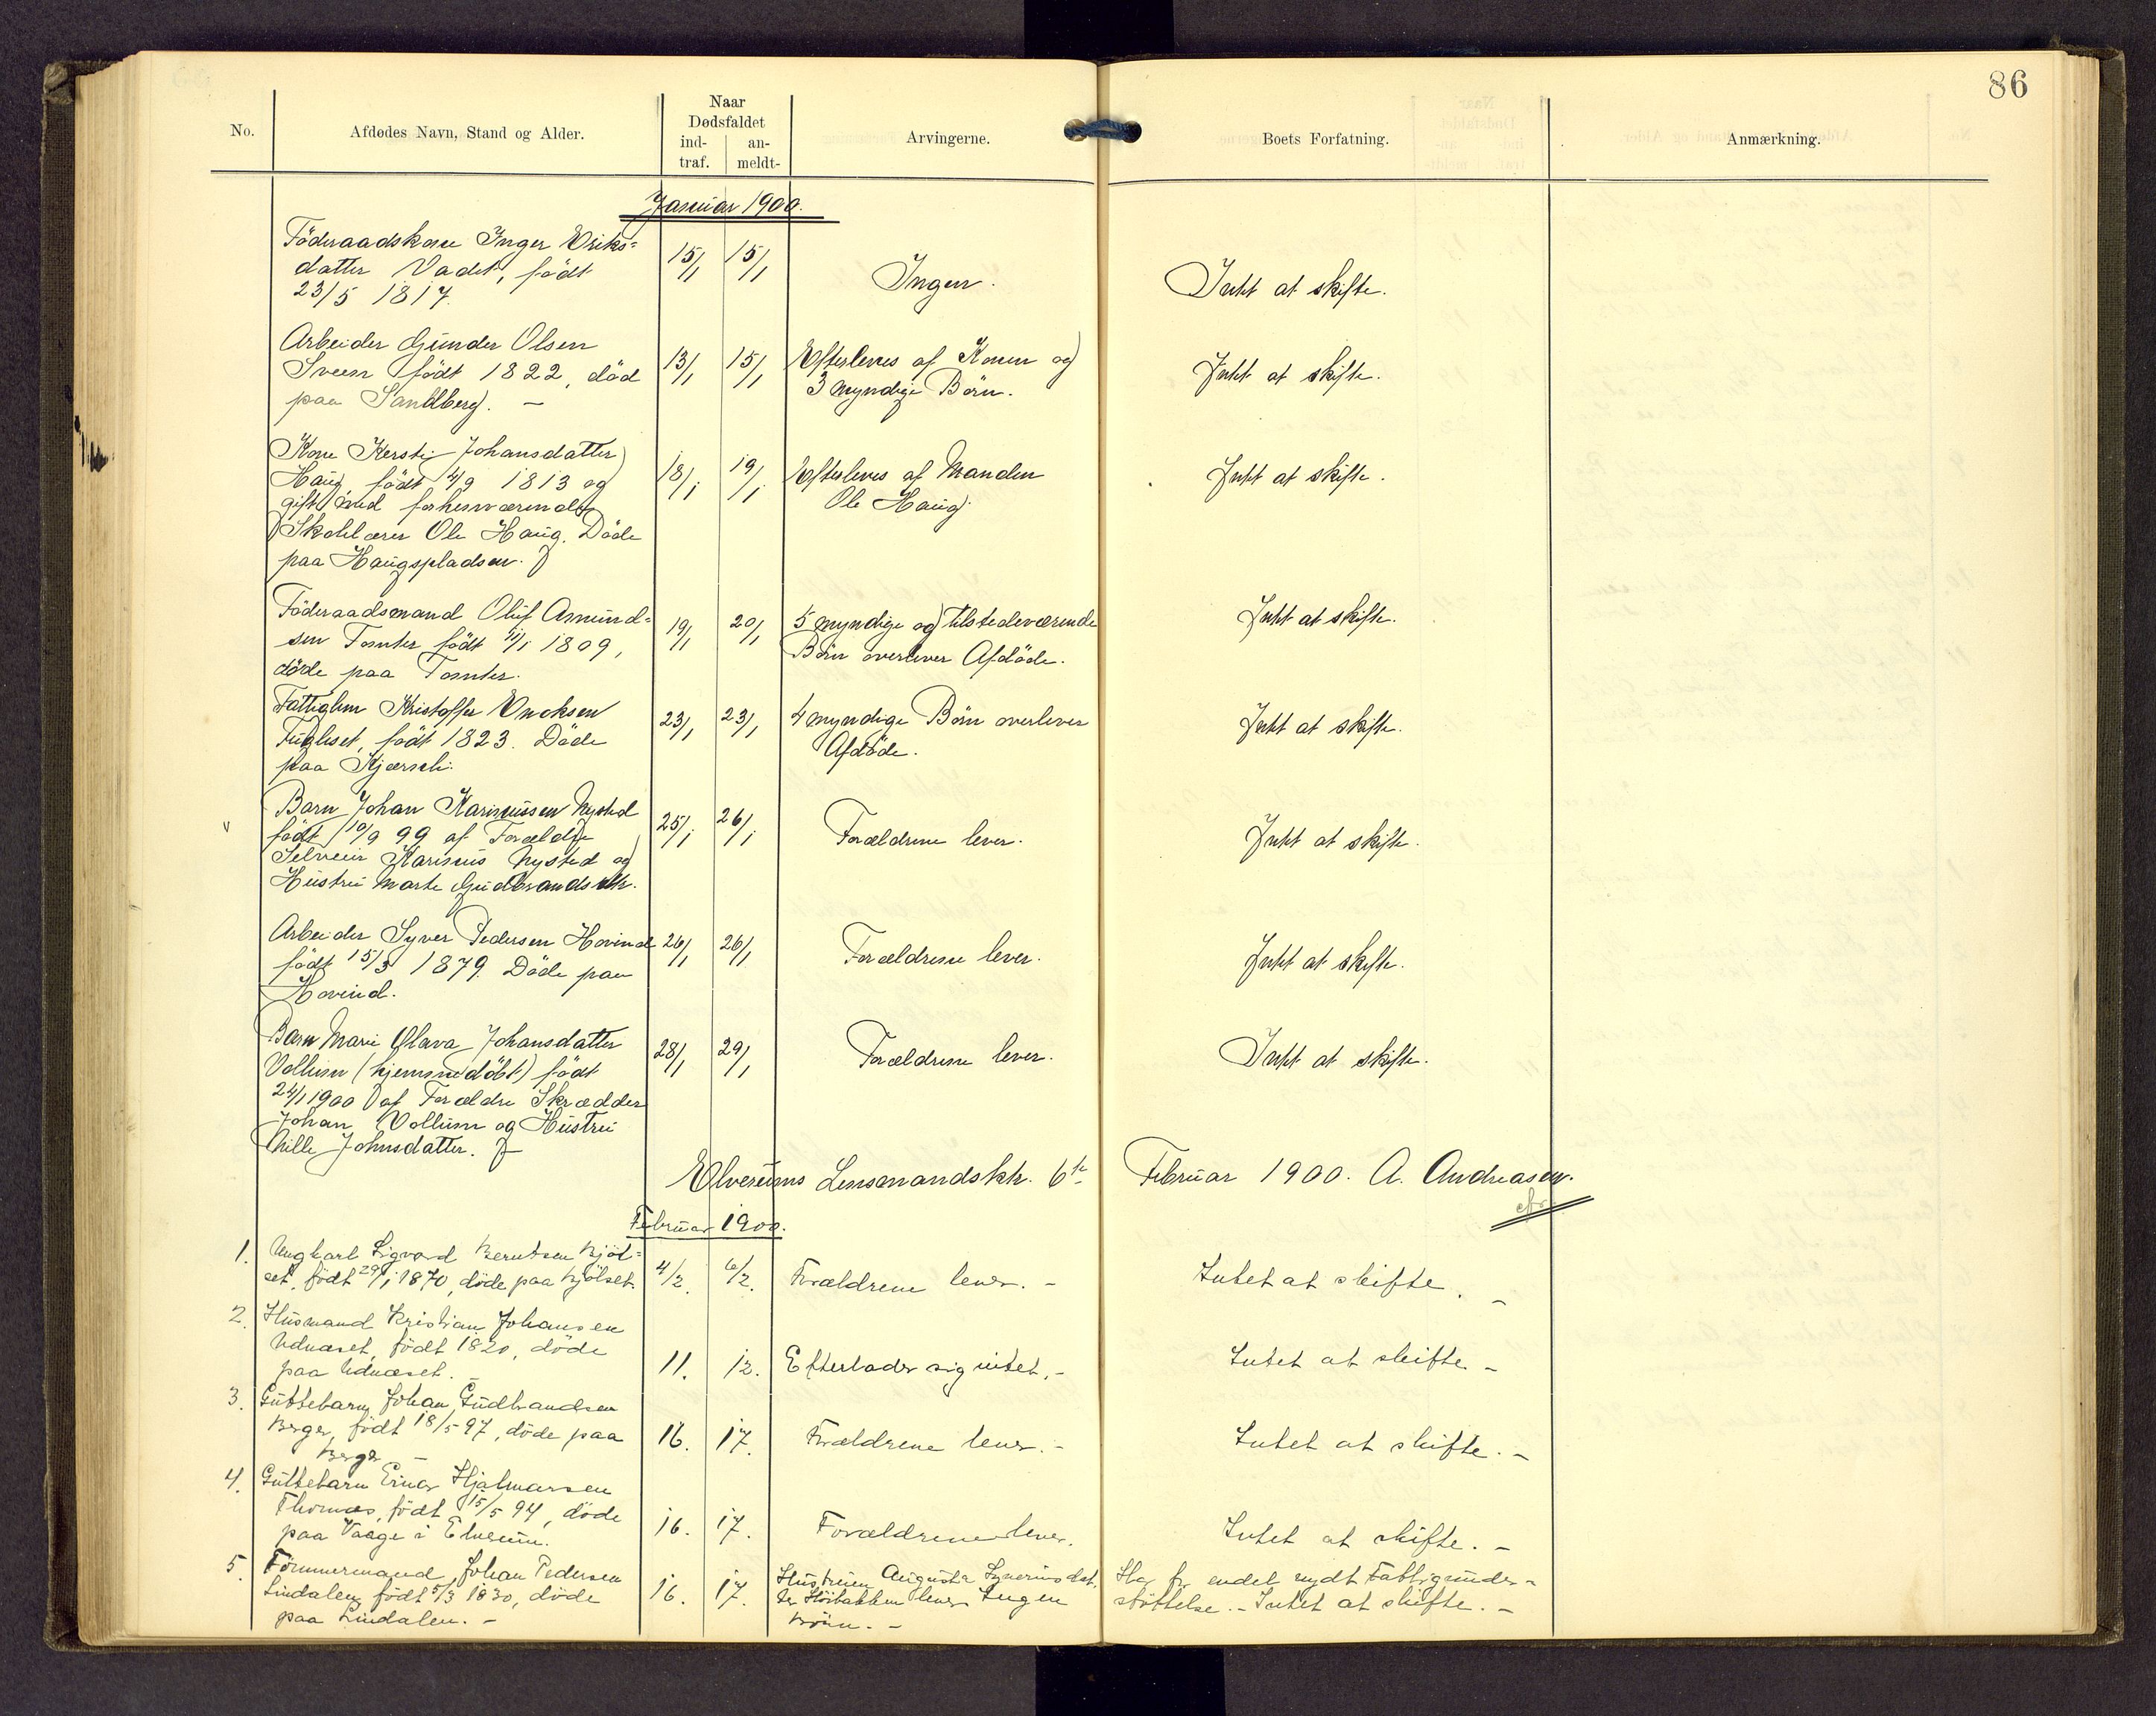 86
No.
Afdødes Navn, Stand og Alder.
Naar
Dødsfaldet
ind-
traf.
an-
meldt-
Arvingerne.
Boets Forfatning.
Anmærkning.
Januar 1900.
Föderaadskone Inger Eriks-
datter Vadet, født
23/5 1817.
15/1 15/1
Ingen.
Intet at skifte.
Arbeider Gunder Olsen
Sveen født 1822, död
paa Sandberg. —
13/1 15/1
Efterleves af Konen og
3 myndige Börn.
Intet at skifte.
Kone Kersti Johansdatter
Haug, födt 4/9 1813 og
gift med forhenværende
Skolelærer Ole Haug. Döde
paa Haugspladsen.
18/1 19/1
Efterleves af Manden
Ole Haug.
Intet at skifte.
Föderaadsmand Oluf Amund-
sen Tomter födt 11/1 1809,
döde paa Tomter.
19/1 20/1
5 myndige og tilstedeværende
Börn overlever Afdöde.
Intet at skifte.
Fattiglem Kristoffer
Fugleset, födt 1823. Döde
paa
23/1 23/1
4 myndige Börn overlever
Afdöde.
Intet at skifte.
Barn Johan Karinussen Nysted
födt 10/9 99 af Forældre
Selveier Karinus Nysted og
Hustru Marte Gudbrandsdtr.
25/1 26/1
Forældrene lever.
Intet at skifte.
Arbeider Syver Pedersen Hovind
födt 15/3 1879. Döde paa
Hovind.
26/1 26/1
Forældrene lever.
Intet at skifte.
Barn Marie Olava Johansdatter
Vollum (hjemmedöbt) födt
24/1 1900 af Forældre Skrædder
Johan Vollum og Hustru
Mille Johnsdatter.
28/1 29/1
Forældrene lever.
Intet at skifte.
Elverums Lensmandsktr. 6te Februar 1900. A. Andreasen.
Februar 1900.
1. Ungkarl Sigvard Berntsen Kjöl-
set, födt 29/1 1870, döde paa Kjölset.
4/2. 6/2.
Forældrene lever. –
Intet at skifte. –
2. Husmand Kristian Johansen
Udnæset, födt 1820, döde
paa Udnæset. –
11. 12.
Efterlader sig intet. –
Intet at skifte –
3. Guttebarn Johan Gudbrandsen
Berger, födt 18/5 97, döde paa
Berger –
16. 17.
Forældrene lever. –
Intet at skifte. –
4. Guttebarn Einar Hjalmarsen
Thomæs, födt 15/5 94, döde
paa Vaage i Elverum.
16. 17.
Forældrene lever.
Intet at skifte. –
5. Tömmermand Johan Pedersen
Lindalen, födt 5/3 1830, döde
paa Lindalen. –
16. 17.
Hustruen Augusta Syverinsdat-
ter lever Ingen
Börn. –
Har för endel nydt Fattigunder-
støttelse. – Intet at skifte. –